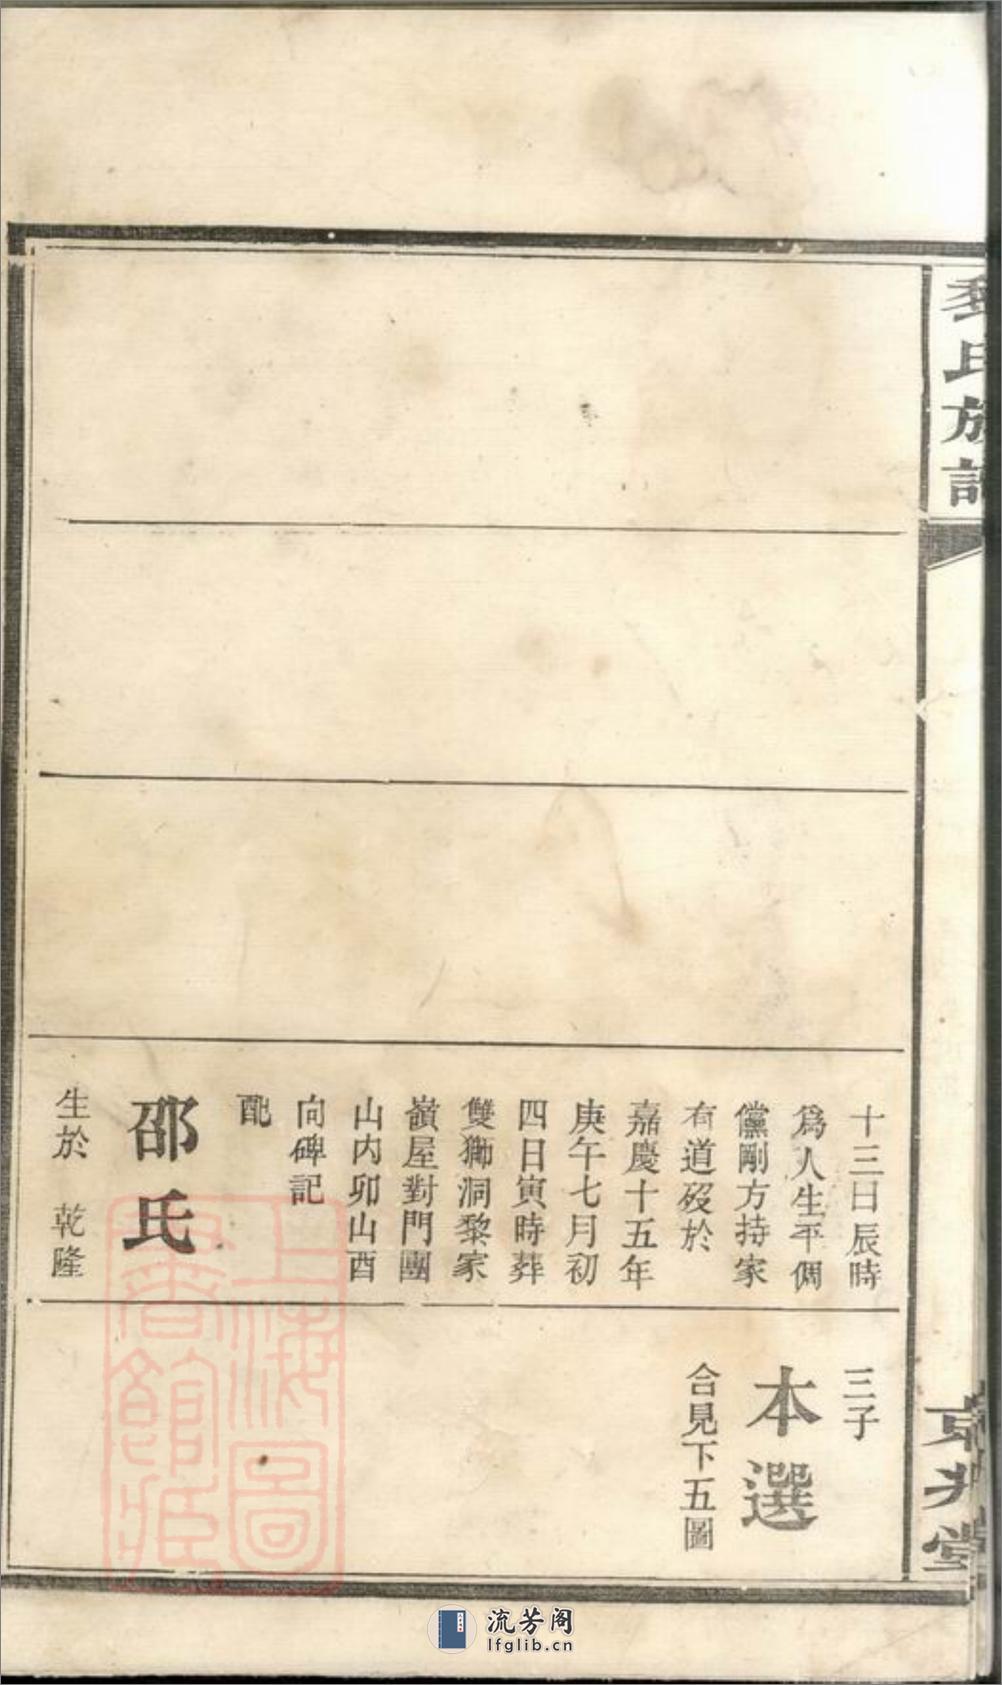 氏族譜
十三日辰時
爲人生平倜
儻剛方持家
有道歿於
嘉慶十五年
庚午七月初
四日寅時葬
雙獅洞黎家
嶺屋對門團
山內卯山酉
向碑記
配
邵氏
生於 乾隆
三子
本選
合見下五圖
上海圖
書館藏
流芳阁
lfglib.cn